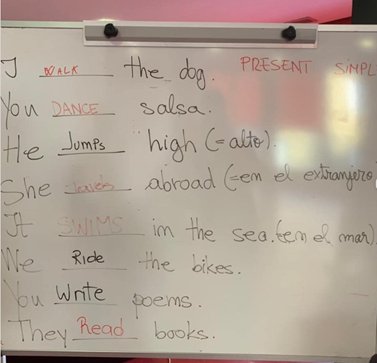 I WALK the dog. PRESENT SIMPL
You DANCE salsa.
He Jumps high (=alto).
She travels abroad (=en el extranjero
It SWIMS in the sea. (=en el mar)
We Ride the bikes.
You Write poems.
They Read books.